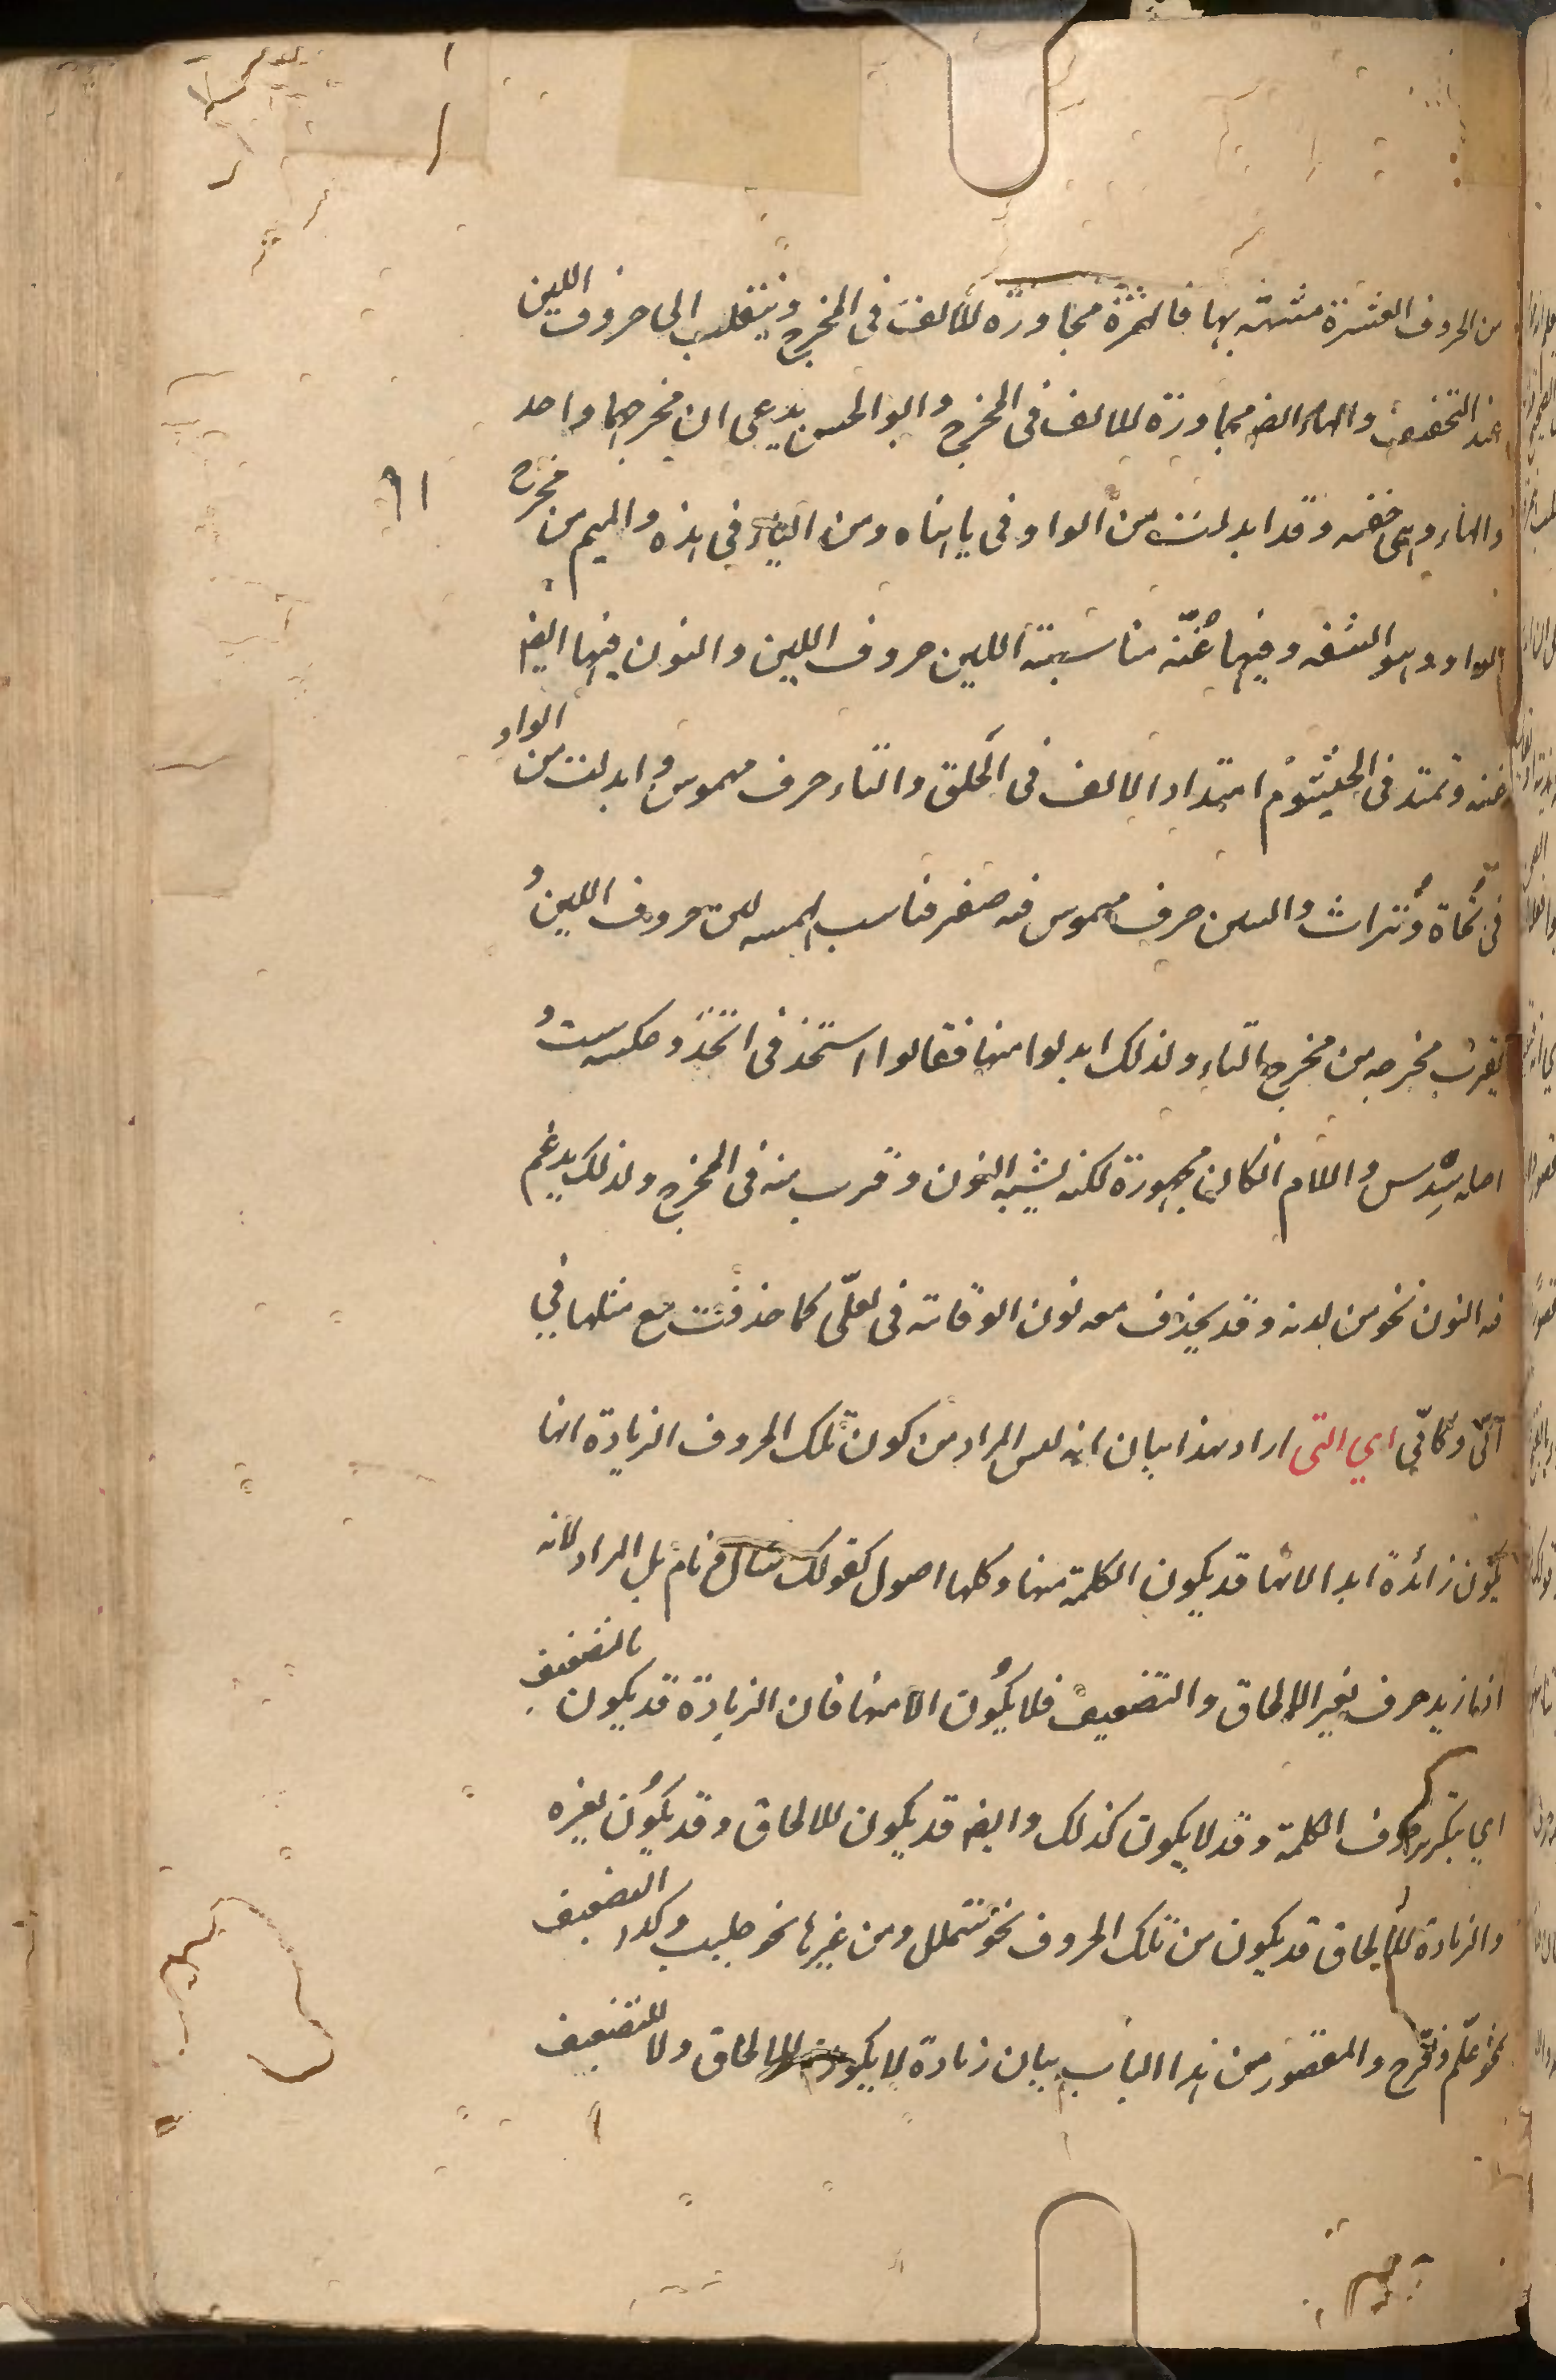 من الحروف العشرة مشبهة بها فالهمزة مجاورة للالف فى المخرج وينقلب الى حروف اللين
عند التخفيف والهاء ايضا مجاورة للالف فى المخرج وابو الحسن يدعى ان مخرجهما واحد
٦١
والهاء وهى خفية وقد ابدلت من الواو فى يا هناه ومن الياء فى هذه والميم من مخرج
الواو وهو الشفة وفيها غنّة مناسبة اللين حروف اللين والنون فيها ايضا
غنة وتمتد فى الخيشوم امتداد الالف فى الحلق والتاء حرف مهموس وابدلت من الواو
فى تُخاة وتُراث والسين حرف مهموس فيه صفير فناسب بهمسه لين حروف اللين و
يقرب مخرجه من مخرج التاء ولذلك ابدلوا منها فقالوا استخذ فى اتّخذ وعكسه ست و
اصله سِدْس واللام ان كان مجهورة لكنه يشبه النون وقرب منه فى المخرج ولذلك يدغم
فيه النون نحو من لدنه وقد يحذف معه نون الوقاية فى لعلّى كما حذفت مع مثلها في
انّى وكانّى اي التى اراد بهذا بيان انه ليس المراد من كون تلك الحروف الزيادة انها
يكون زائدة ابدا لانها قد يكون الكلمة منها وكلها اصول كقولك سال و نام بل المراد لانه
اذا زيد حرف لغير الالحاق والتضعيف فلا يكون الا منها فان الزيادة قد يكون بالتضعيف
اي بتكرير حروف الكلمة وقد لا يكون كذلك وايضا قد يكون للالحاق وقد يكون لغيره
والزيادة للالحاق قد يكون من تلك الحروف نحو شملل ومن غيرها نحو جلبب وكذا التضعيف
نحو علّم وفرّح والمقصور من هذا الباب بيان زيادة لا يكون للالحاق ولا للتضعيف